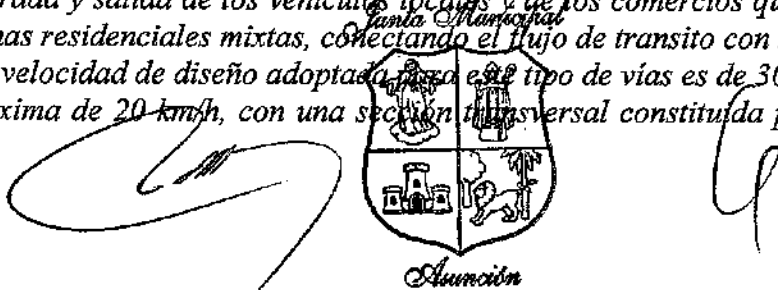 rada y salida de los vehículos locales y de los comercios qu
Junta Municipal
nas residenciales mixtas, conectando el flujo de transito con
velocidad de diseño adoptada para este tipo de vías es de 30
xima de 20 km/h, con una sección transversal constituida p
Asunción